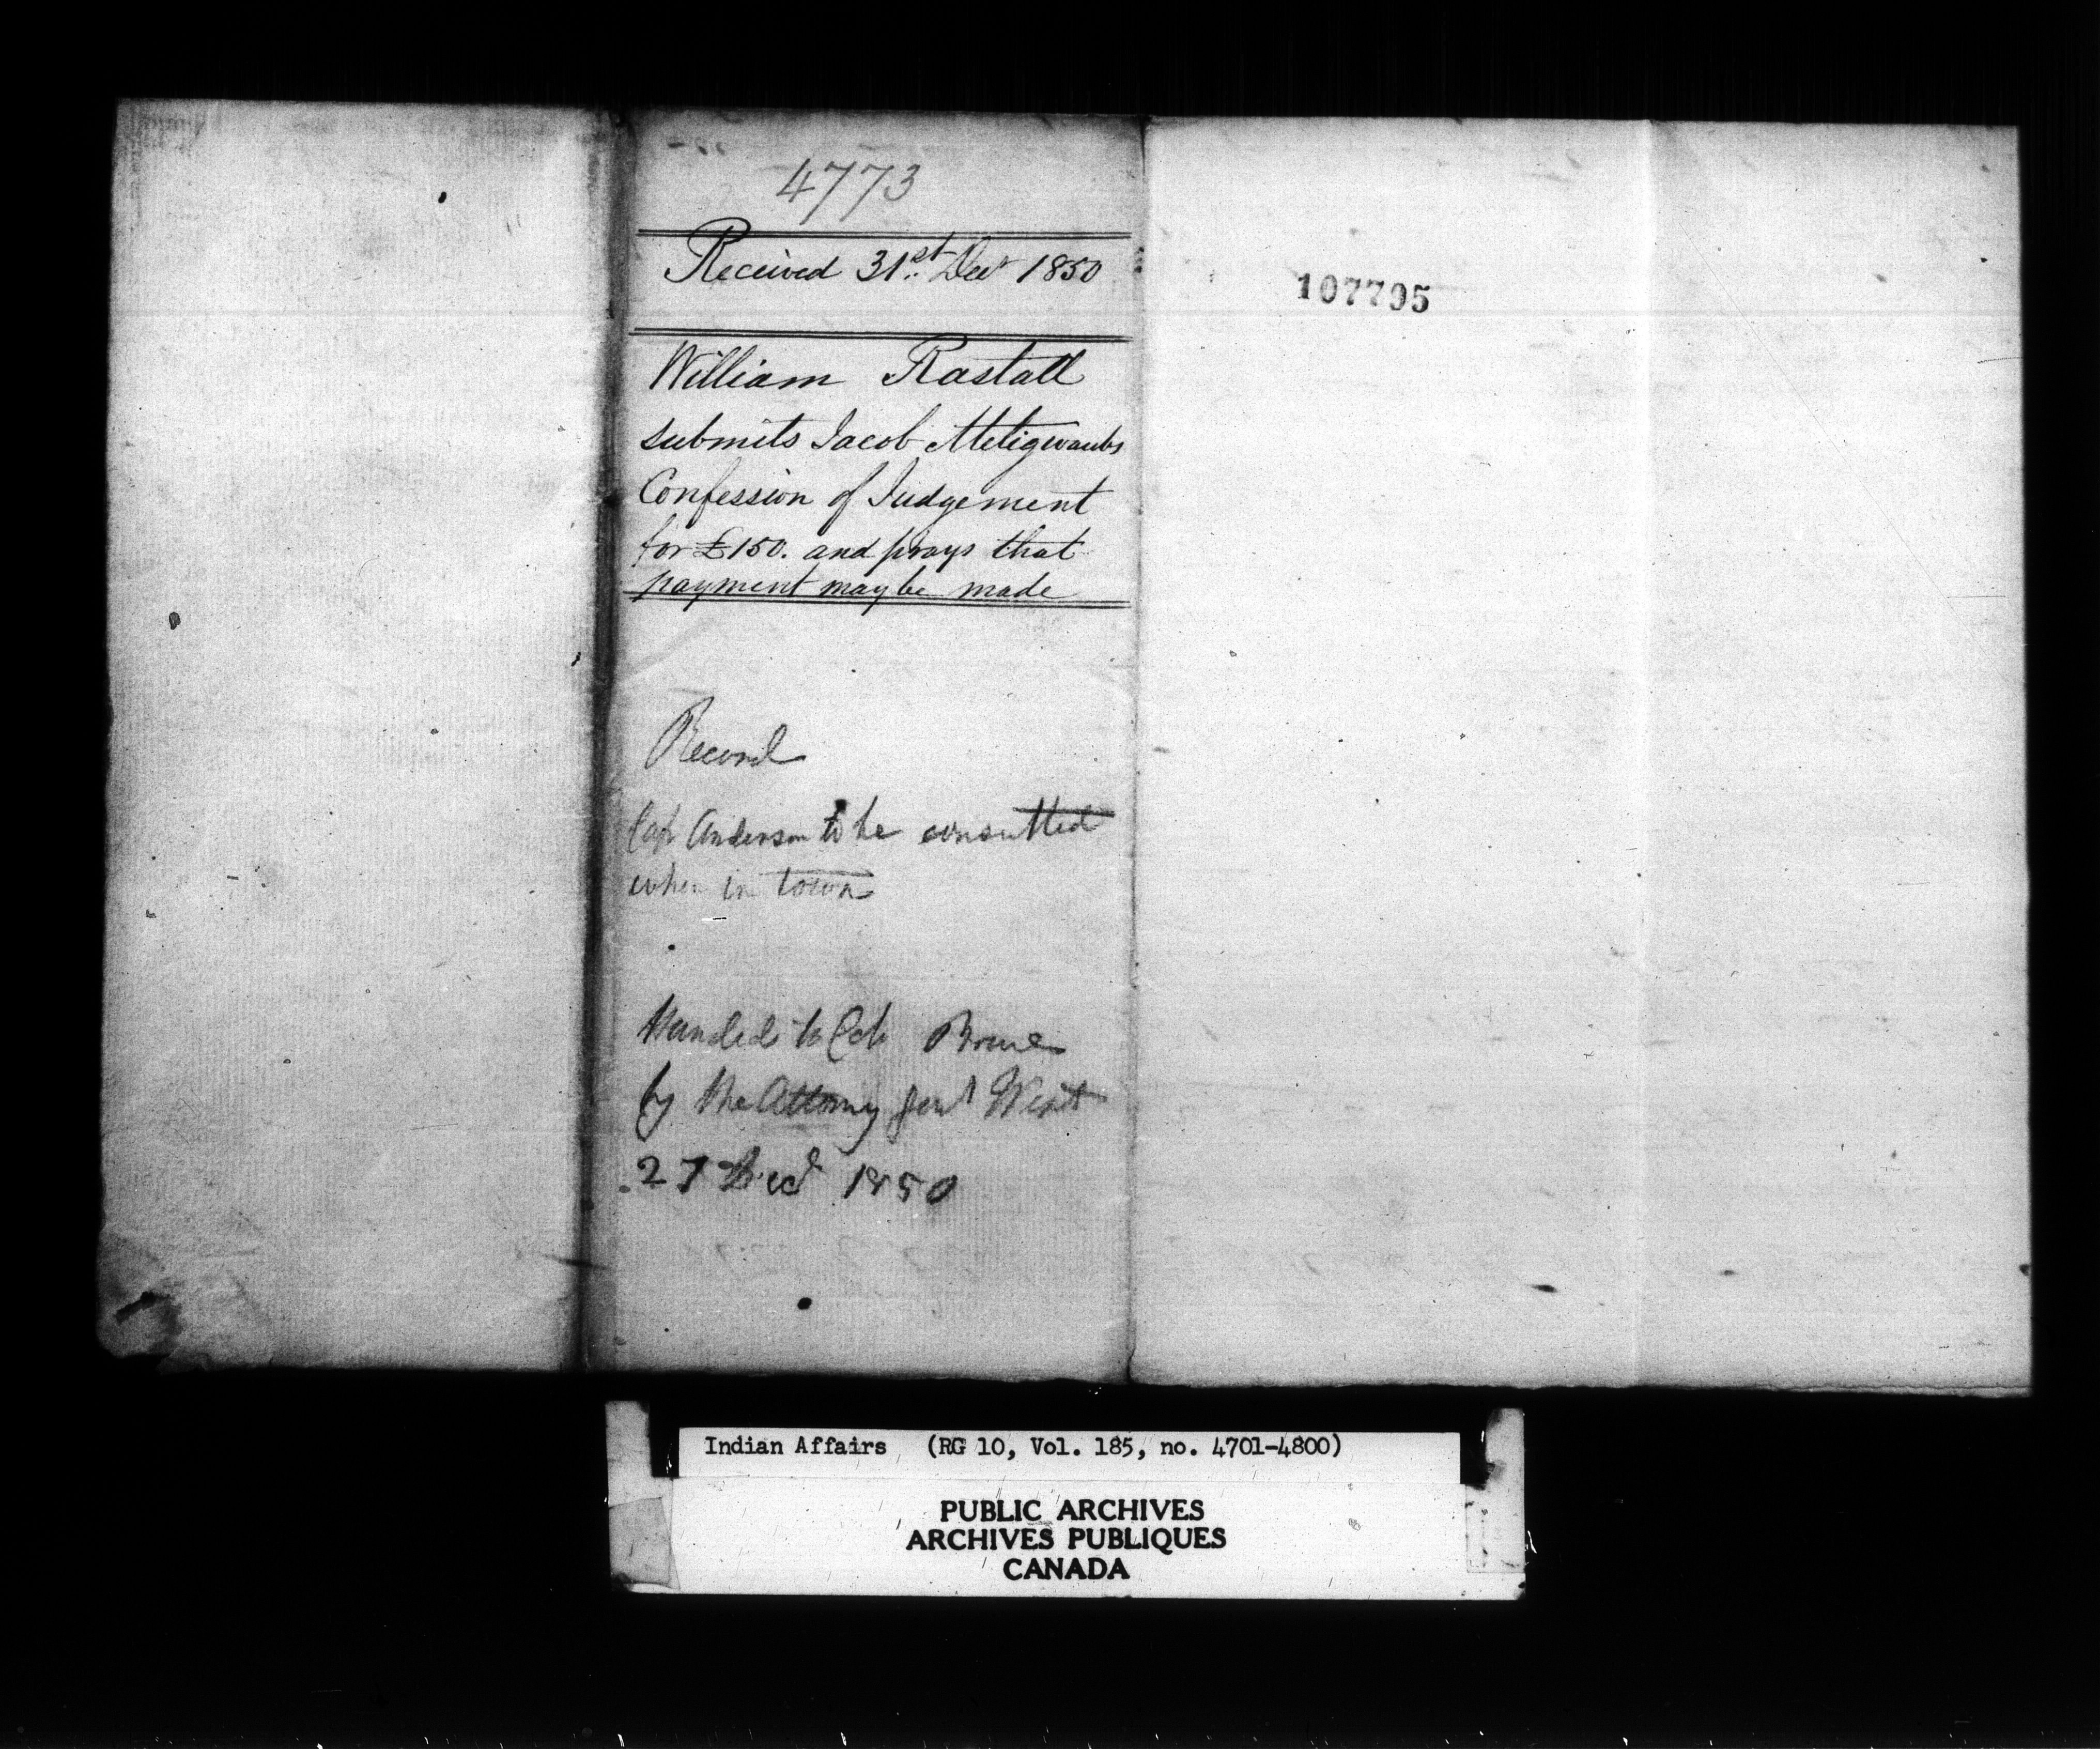 4773
Received 31st Decr 1850
William Rastall
submits Jacob Metigwaubs
Confession of Judgement
for £150. and prays that
payment may be made
Record
Capt Anderson to be consulted
when in town
Handed to Col Bruce
by the Attorney Genl West
27 Decr 1850
107795
Indian Affairs (RG 10, Vol. 185, no. 4701-4800)
PUBLIC ARCHIVES
ARCHIVES PUBLIQUES
CANADA